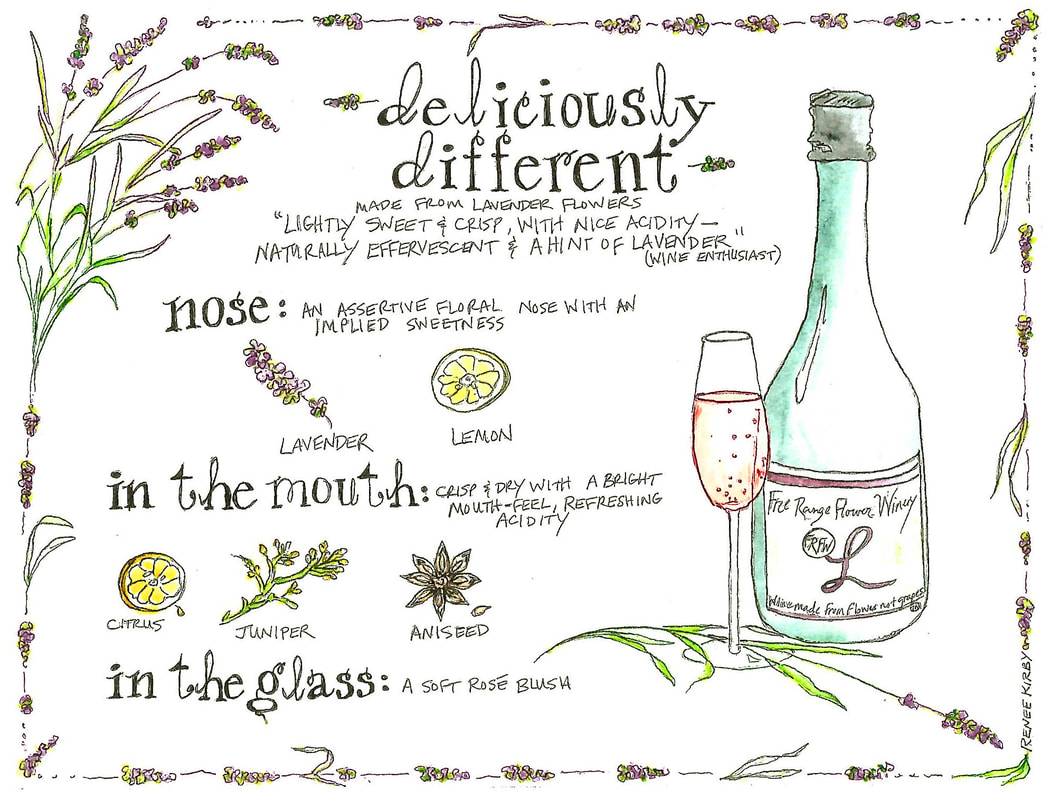 deliciously
different
MADE FROM LAVENDER FLOWERS
"LIGHTLY SWEET & CRISP, WITH NICE ACIDITY—
NATURALLY EFFERVESCENT & A HINT OF LAVENDER"
(WINE ENTHUSIAST)
nose: AN ASSERTIVE FLORAL NOSE WITH AN
IMPLIED SWEETNESS
LAVENDER
LEMON
in the mouth: CRISP & DRY WITH A BRIGHT
MOUTH-FEEL, REFRESHING
ACIDITY
CITRUS
JUNIPER
ANISEED
in the glass: A SOFT ROSÉ BLUSH
Free Range Flower Winery
FRFW
L
Wine made from flowers not grapes
RENEE KIRBY